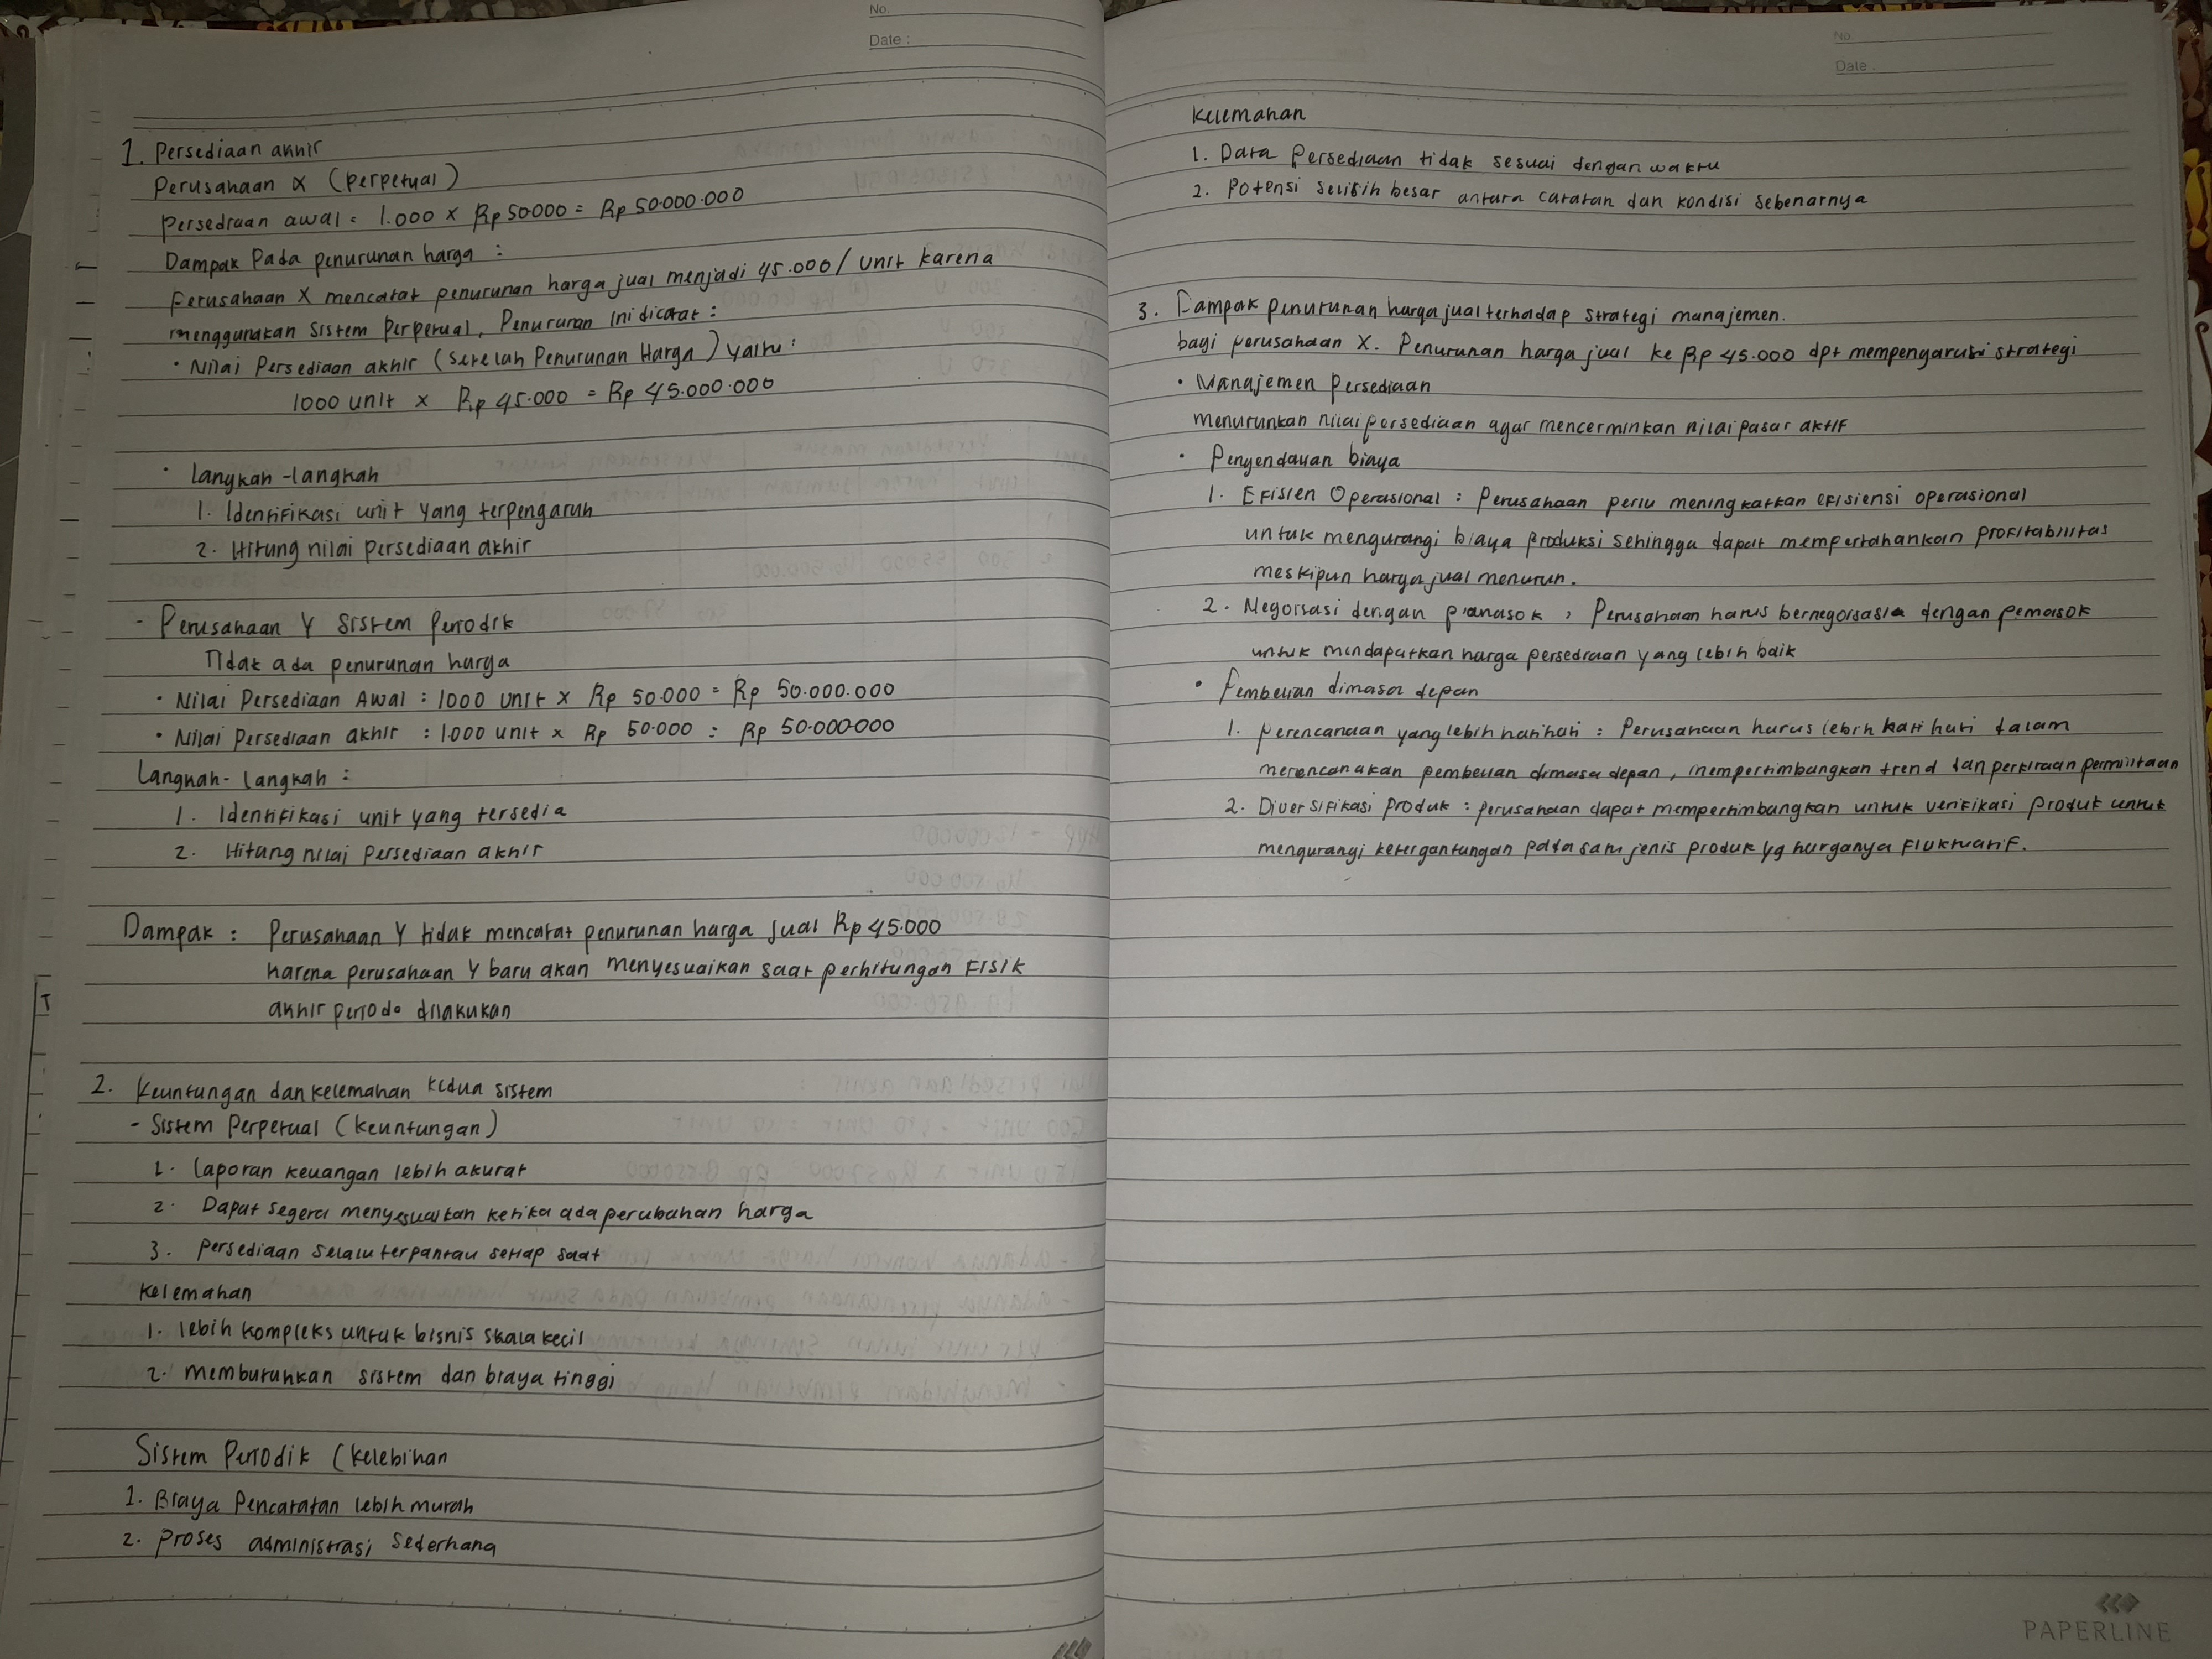 No.
Date :
1. Persediaan akhir
Perusahaan X (perpetual)
persediaan awal = 1.000 x Rp 50.000 = Rp 50.000.000
Dampak Pada penurunan harga :
Perusahaan X mencatat penurunan harga jual menjadi 45.000/ unit karena
menggunakan sistem perpetual, Penurunan ini dicatat :
• Nilai Persediaan akhir (setelah Penurunan Harga) yaitu :
1000 unit x Rp 45.000 = Rp 45.000.000
• Langkah-langkah
1. Identifikasi unit yang terpengaruh
2. Hitung nilai persediaan akhir
- Perusahaan Y Sistem Periodik
Tidak ada penurunan harga
• Nilai Persediaan Awal : 1000 unit x Rp 50.000 = Rp 50.000.000
• Nilai Persediaan akhir : 1.000 unit x Rp 50.000 = Rp 50.000.000
Langkah-langkah :
1. Identifikasi unit yang tersedia
2. Hitung nilai persediaan akhir
Dampak : Perusahaan Y tidak mencatat penurunan harga jual Rp 45.000
karena perusahaan Y baru akan menyesuaikan saat perhitungan FISIK
akhir periode dilakukan
2. Keuntungan dan kelemahan kedua sistem
- Sistem Perpetual (keuntungan)
1. Laporan keuangan lebih akurat
2. Dapat segera menyesuaikan ketika ada perubahan harga
3. Persediaan selalu terpantau setiap saat
Kelemahan
1. lebih kompleks untuk bisnis skala kecil
2. membutuhkan sistem dan biaya tinggi
Sistem Periodik (kelebihan
1. Biaya Pencatatan lebih murah
2. proses administrasi sederhana
No.
Date :
Kelemahan
1. Data Persediaan tidak sesuai dengan waktu
2. Potensi selisih besar antara catatan dan kondisi sebenarnya
3. Dampak penurunan harga jual terhadap strategi manajemen.
bagi perusahaan X. Penurunan harga jual ke Rp 45.000 dpt mempengaruhi strategi
• Manajemen Persediaan
menurunkan nilai persediaan agar mencerminkan nilai pasar aktif
• Pengendalian biaya
1. EFisien Operasional : Perusahaan perlu meningkatkan efisiensi operasional
untuk mengurangi biaya produksi sehingga dapat mempertahankan profitabilitas
meskipun harga jual menurun.
2. Negoisasi dengan : Perusahaan harus bernegoisasi dengan pemasok
untuk mendapatkan harga persediaan yang lebih baik
• Pembelian dimasa depan
1. perencanaan yang lebih hatihati : Perusahaan harus lebih hati hati dalam
merencanakan pembelian dimasa depan, mempertimbangkan trend dan perkiraan permintaan
2. Diversifikasi Produk : perusahaan dapat mempertimbangkan untuk verifikasi produk untuk
mengurangi ketergantungan pada satu jenis produk yg harganya Fluktuatif.
PAPERLINE